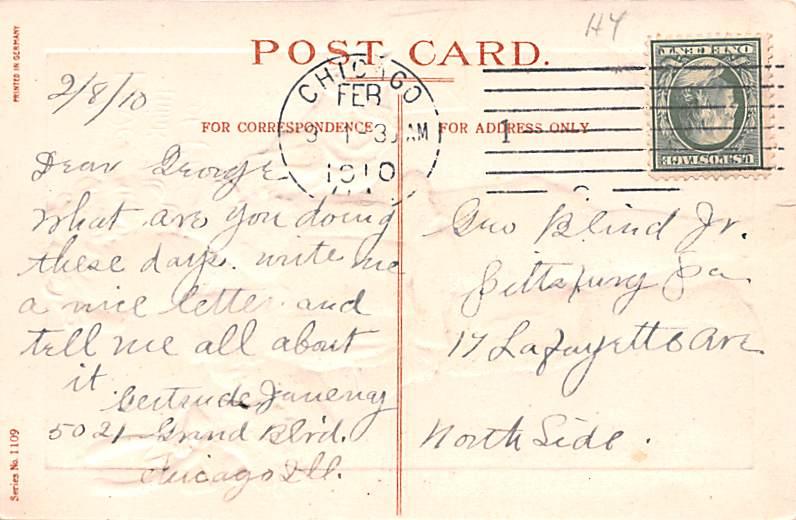 POST CARD.
PRINTED IN GERMANY
HY
2/8/10
CHICAGO
FEB
9 1-30 AM
1910
1
U.S. POSTAGE
ONE CENT
FOR CORRESPONDENCE
FOR ADDRESS ONLY
Dear George
What are you doing
these days. write me
a nice letter and
tell me all about
it
Gertrude
5021 Grand Blvd.
Chicago Ill.
Geo Blind Jr.
Pittsburg Pa
17 LaFayette Ave
North Side.
Series No. 1109